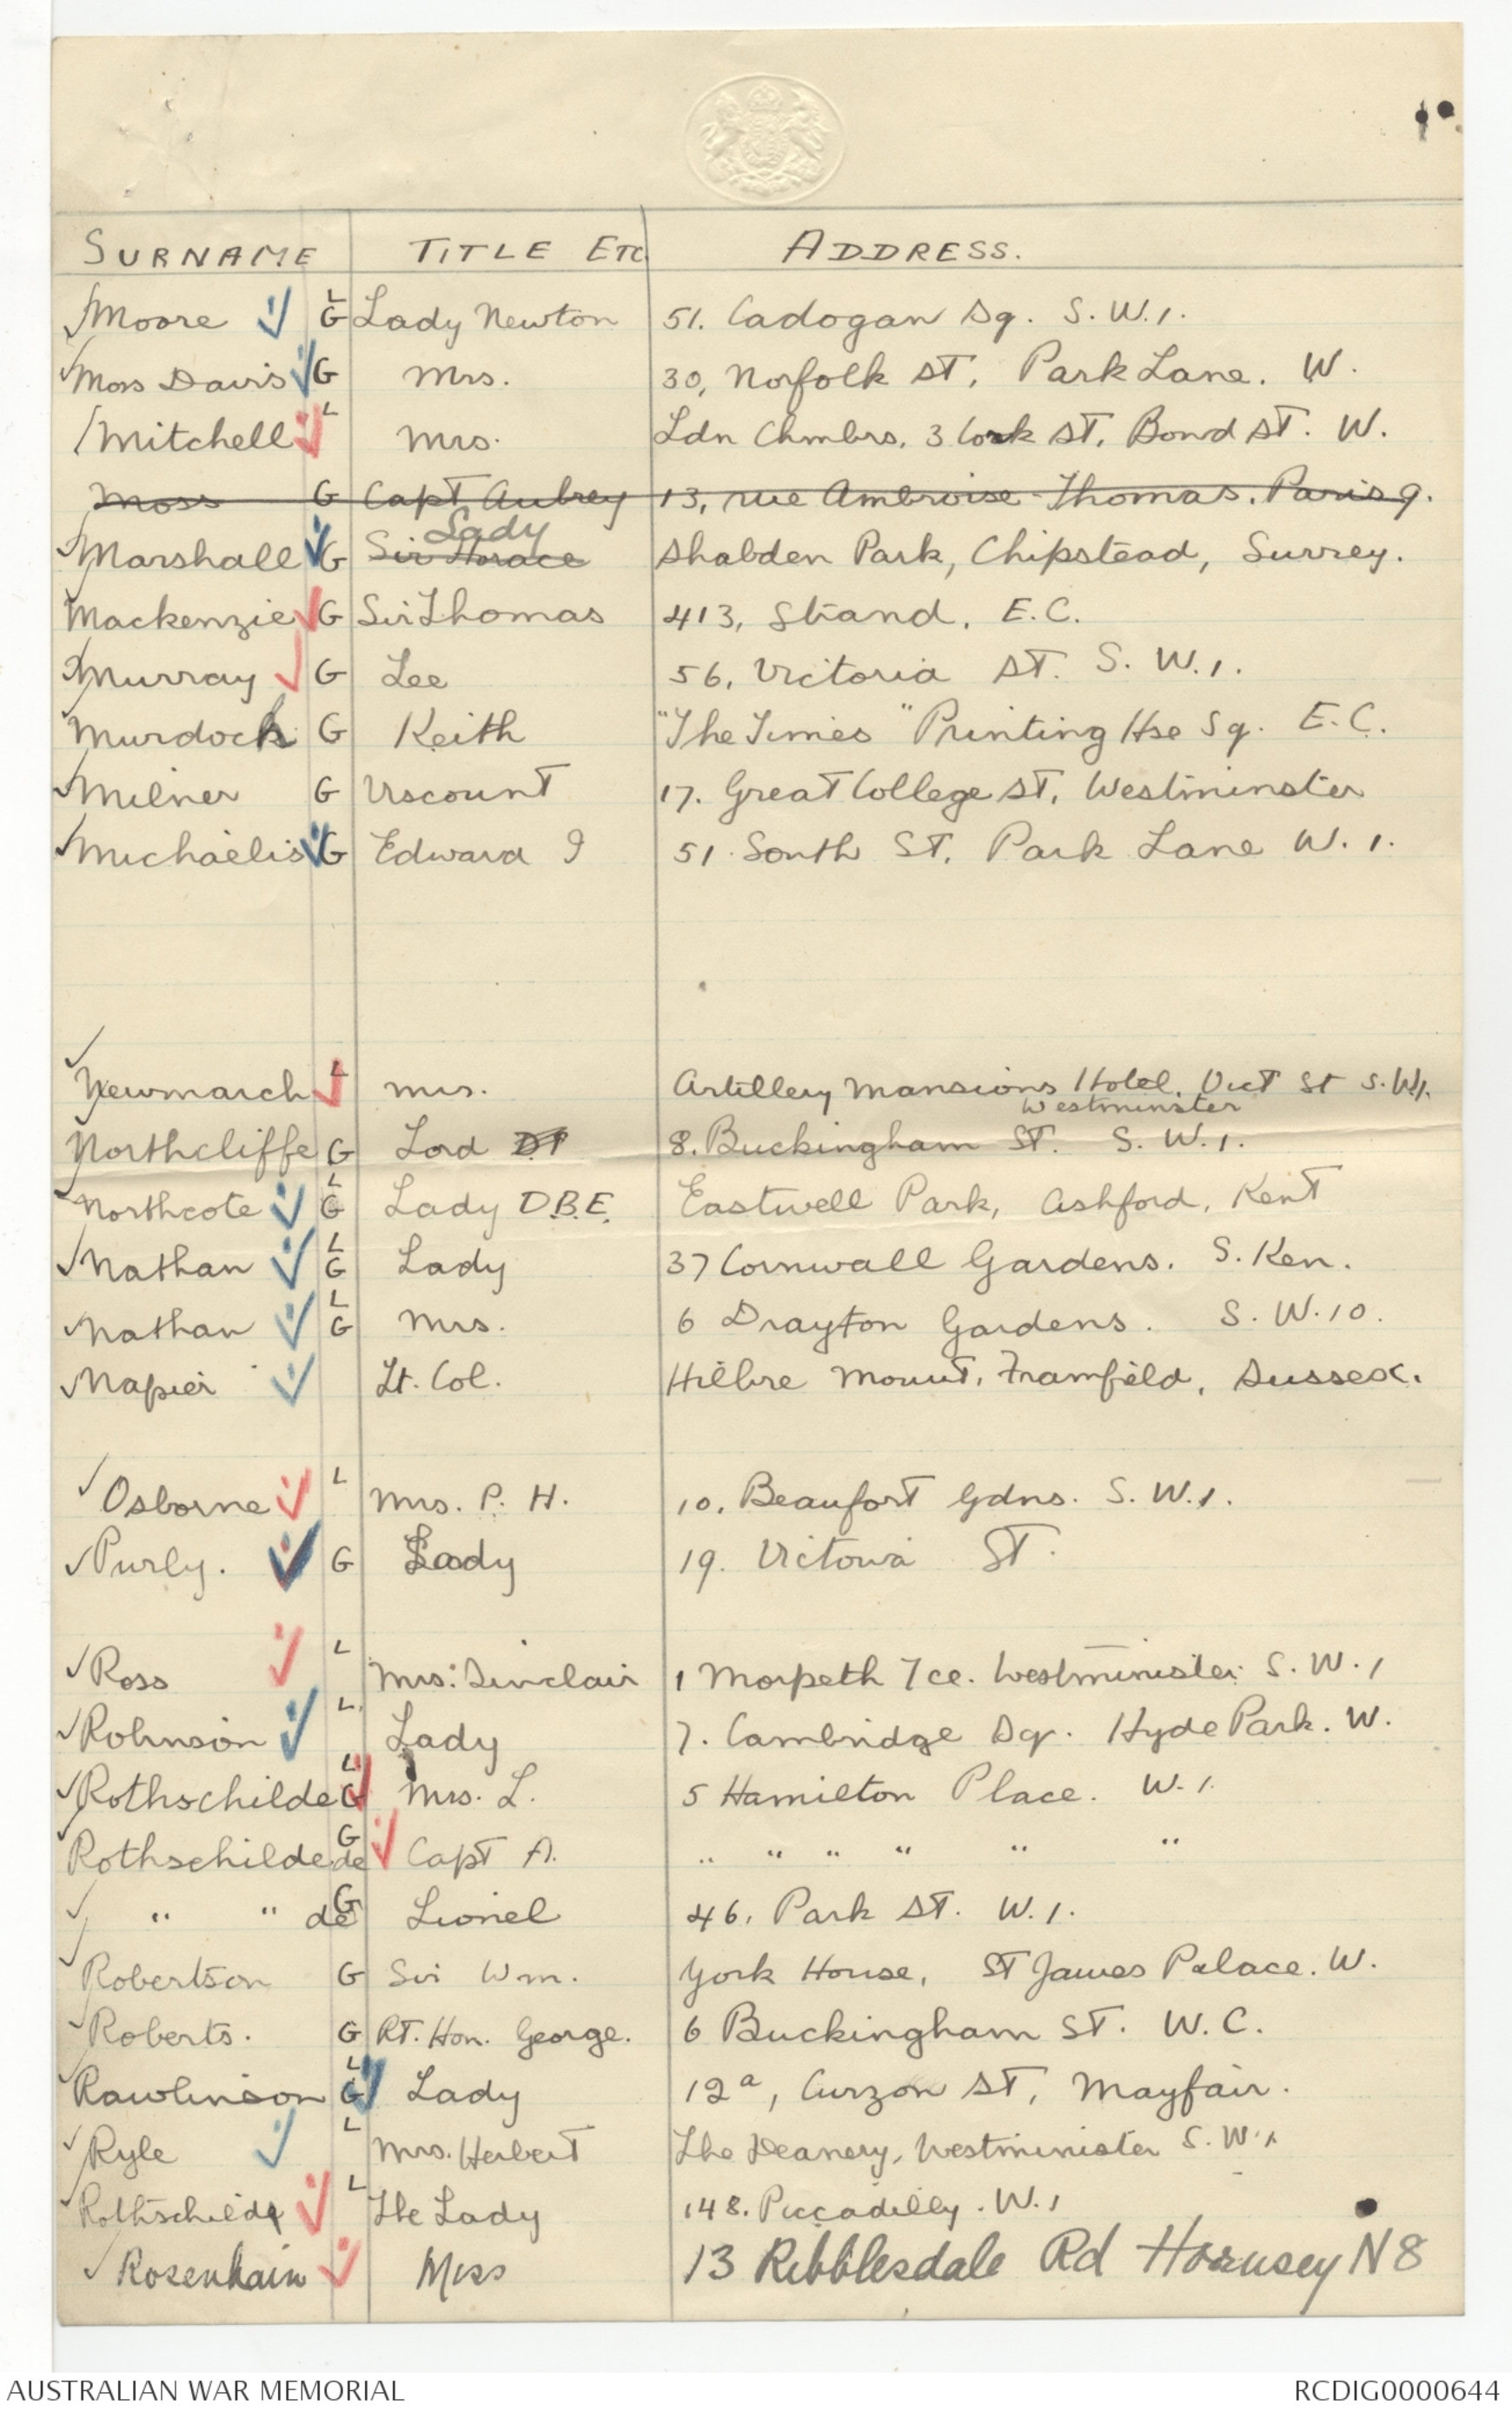 SURNAME TITLE ETC ADDRESS.
Moore L G Lady Newton 51. Cadogan Sq. S.W.1.
Moss Davis G Mrs. 30, Norfolk St, Park Lane. W.
Mitchell L Mrs. Ldn Chmbrs. 3 Cork St, Bond St. W.
Moss G Capt Aubrey 13, rue Ambroise Thomas. Paris 9.
Lady
Marshall G Sir Horace Shabden Park, Chipstead, Surrey.
Mackenzie G Sir Thomas 413, Strand, E.C.
Murray G Lee 56, Victoria St. S.W.1.
Murdoch G Keith "The Times" Printing Hse Sq. E.C.
Milner G Viscount 17. Great College St, Westminster
Michaelis G Edward I 51 South St, Park Lane W.1.
Newmarch L Mrs. Artillery Mansions Hotel. Vict St S.W.1.
Westminster
Northcliffe G Lord 8. Buckingham St. S.W.1.
Northcote L G Lady D.B.E. Eastwell Park, Ashford, Kent
Nathan L G Lady 37 Cornwall Gardens. S. Ken.
Nathan L G Mrs. 6 Drayton Gardens. S.W.10.
Napier Lt. Col. Hilbre Mount, Framfield, Sussex.
Osborne L Mrs. P. H. 10, Beaufort Gdns. S.W.1.
Purly. G Lady 19. Victoria St.
Ross L Mrs. Sinclair 1 Morpeth Tce. Westminister S.W.1
Robinson L. Lady 7. Cambridge Sq. Hyde Park. W.
Rothschilde L G Mrs. L. 5 Hamilton Place. W.1.
Rothschilde de G Capt A. " " " " " "
" " de G Lionel 46, Park St. W.1.
Robertson G Sir Wm. York House, St James Palace. W.
Roberts. G Rt. Hon. George. 6 Buckingham St. W.C.
Rawlinson L G Lady 12a, Curzon St, Mayfair.
Ryle L Mrs. Herbert The Deanery, Westminister S.W.1
Rothschilde L The Lady 148. Piccadilly. W.1
Rosenhain Miss 13 Ribblesdale Rd Hornsey N8
AUSTRALIAN WAR MEMORIAL RCDIG0000644